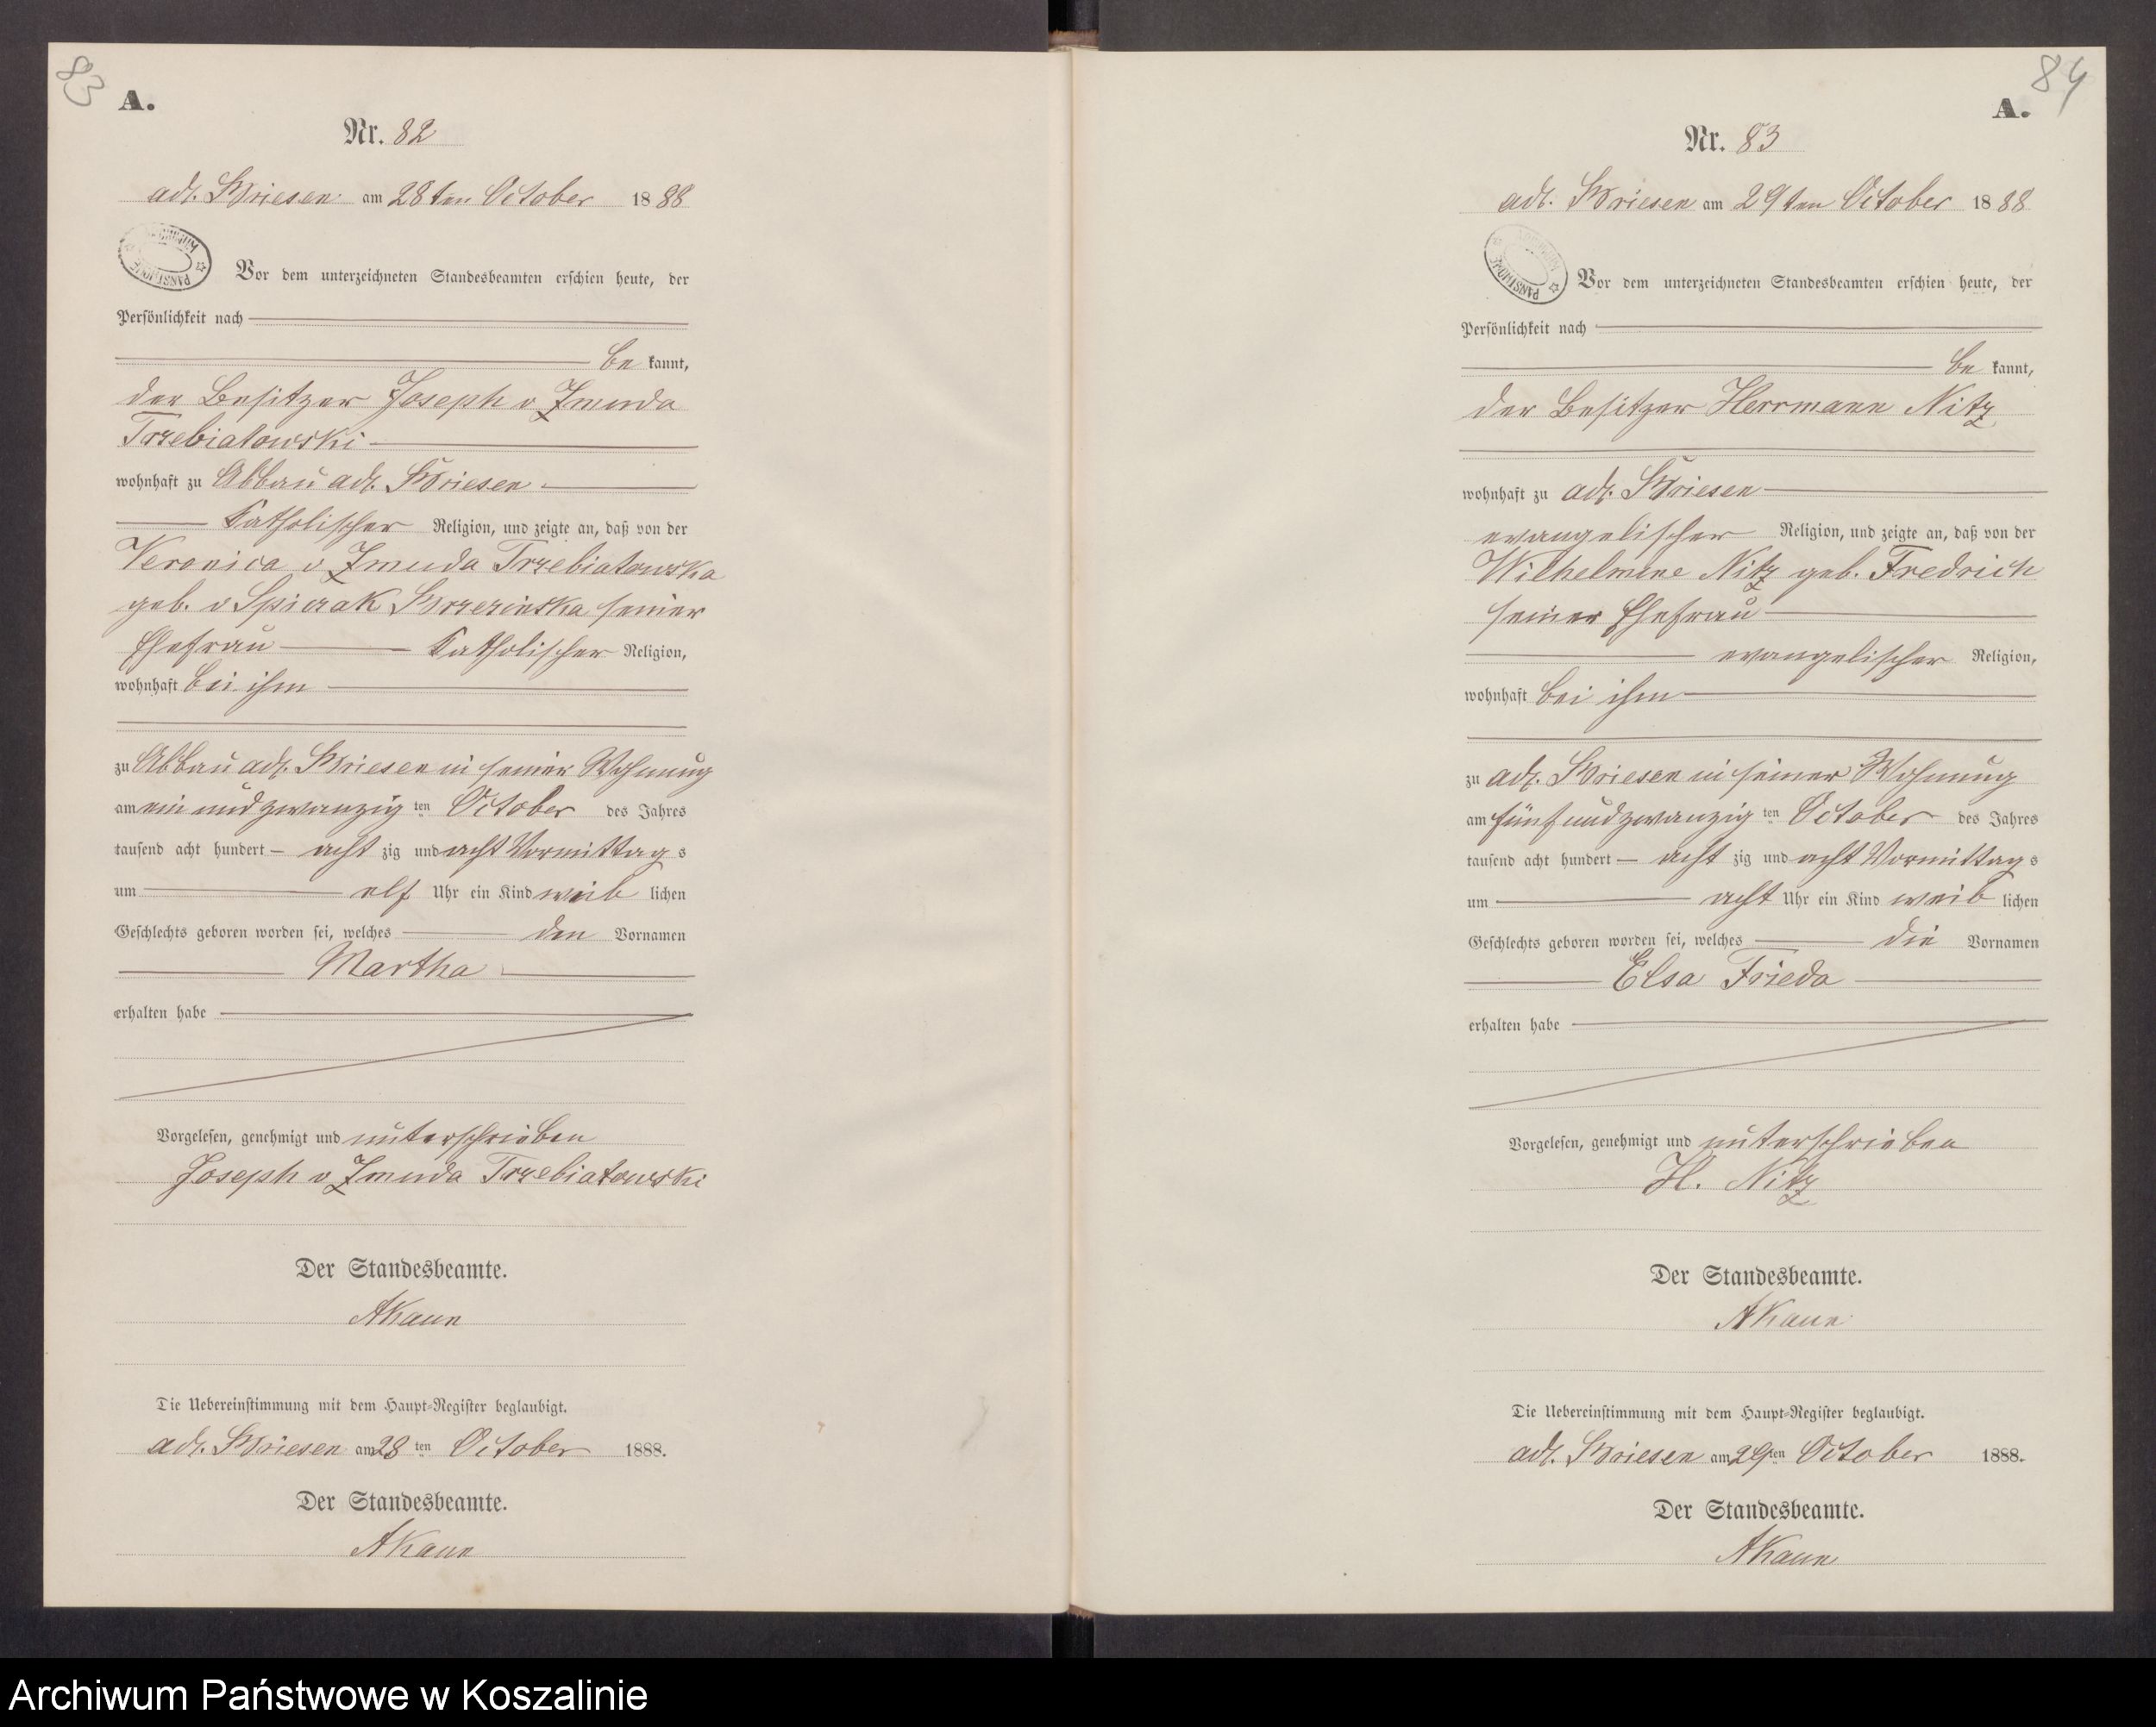 83
A.
Nr. 82
adl. Briesen am 28ten October 1888
Vor dem unterzeichneten Standesbeamten erschien heute, der
Persönlichkeit nach
bekannt,
der Besitzer Joseph v Zmuda
Trzebiatowski
wohnhaft zu Abbau adl. Briesen
Katholischer Religion, und zeigte an, daß von der
Veronica v Zmuda Trzebiatowska
geb. v Spiczak Brzezinska seiner
Ehefrau Katholischer Religion,
wohnhaft bei ihm
zu Abbau adl. Briesen in seiner Wohnung
am ein und zwanzig ten October des Jahres
tausend acht hundert acht zig und acht Vormittags
um elf Uhr ein Kind weiblichen
Geschlechts geboren worden sei, welches den Vornamen
Martha
erhalten habe
Vorgelesen, genehmigt und unterschrieben
Joseph v Zmuda Trzebiatowski
Der Standesbeamte.
AKaun
Die Uebereinstimmung mit dem Haupt-Register beglaubigt.
adl. Briesen am 28 ten October 1888.
Der Standesbeamte.
AKaun
84
A.
Nr. 83
adl. Briesen am 29ten October 1888
Vor dem unterzeichneten Standesbeamten erschien heute, der
Persönlichkeit nach
bekannt,
der Besitzer Herrmann Nitz
wohnhaft zu adl. Briesen
evangelischer Religion, und zeigte an, daß von der
Wilhelmine Nitz geb. Fredrich
seiner Ehefrau
evangelischer Religion,
wohnhaft bei ihm
zu adl. Briesen in seiner Wohnung
am fünf und zwanzig ten October des Jahres
tausend acht hundert acht zig und acht Vormittags
um acht Uhr ein Kind weiblichen
Geschlechts geboren worden sei, welches die Vornamen
Elsa Frieda
erhalten habe
Vorgelesen, genehmigt und unterschrieben
H. Nitz
Der Standesbeamte.
AKaun
Die Uebereinstimmung mit dem Haupt-Register beglaubigt.
adl. Briesen am 29ten October 1888.
Der Standesbeamte.
AKaun
Archiwum Państwowe w Koszalinie